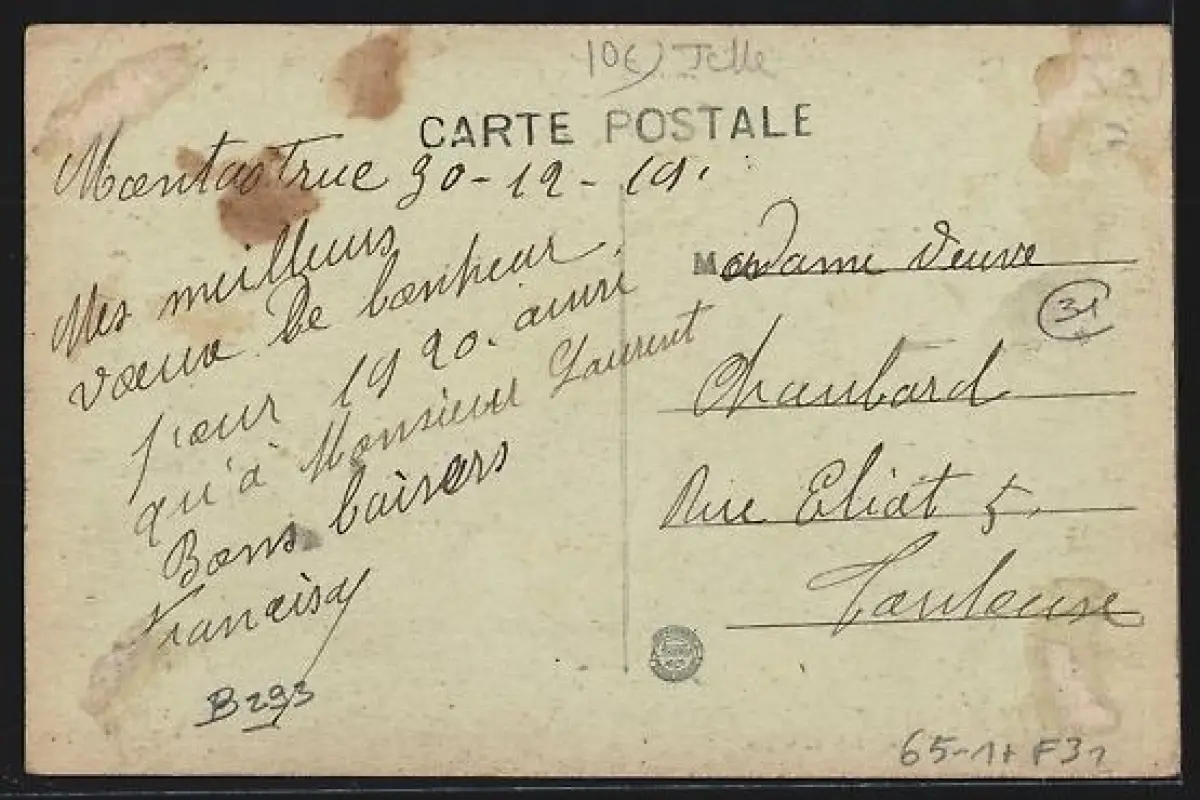 10€ Jelle
CARTE POSTALE
Montastruc 30-12-19.
Mes meilleurs
vœux de bonheur
pour 1920. ainsi
qu'à Monsieur Laurent
Bons baisers
Francisq
B293
Madame Veuve
31
Chaubard
Rue Eliot 5.
Toulouse
65-1+ F31